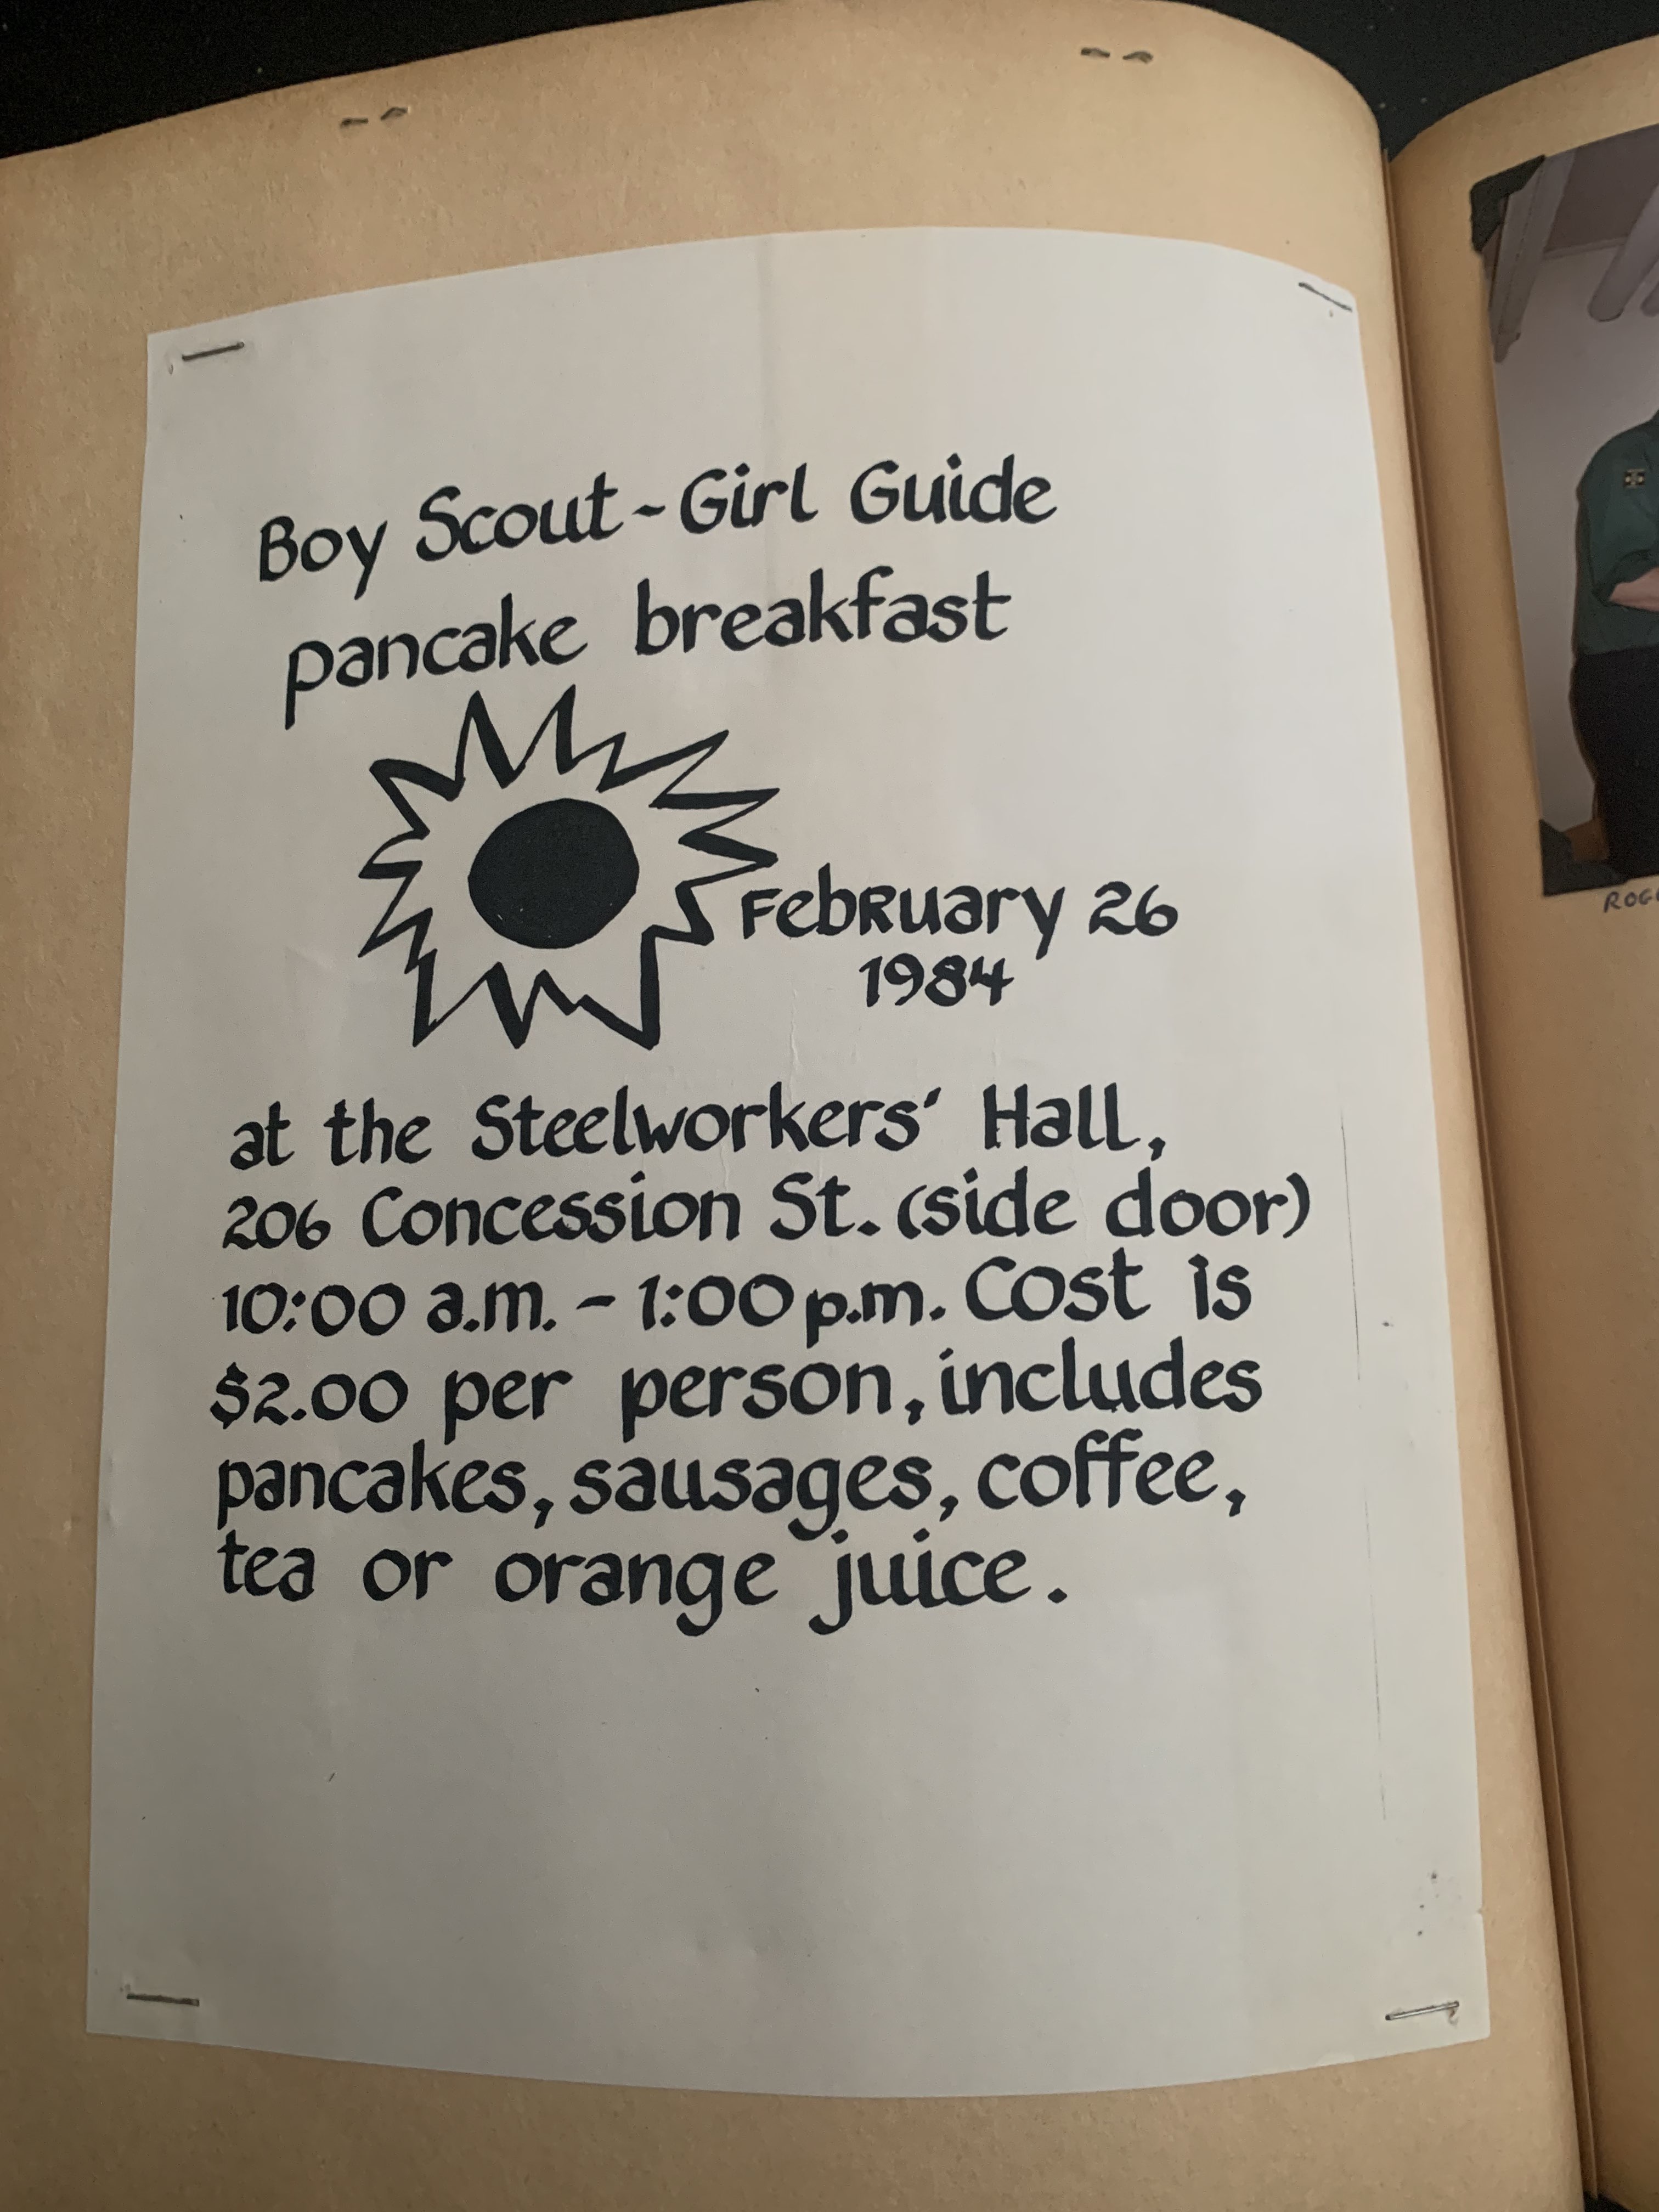 Boy Scout ~ Girl Guide
pancake breakfast
FebRuary 26
1984
at the Steelworkers' Hall,
206 Concession St. (side door)
10:00 a.m. - 1:00 p.m. Cost is
$2.00 per person, includes
pancakes, sausages, coffee,
tea or orange juice.